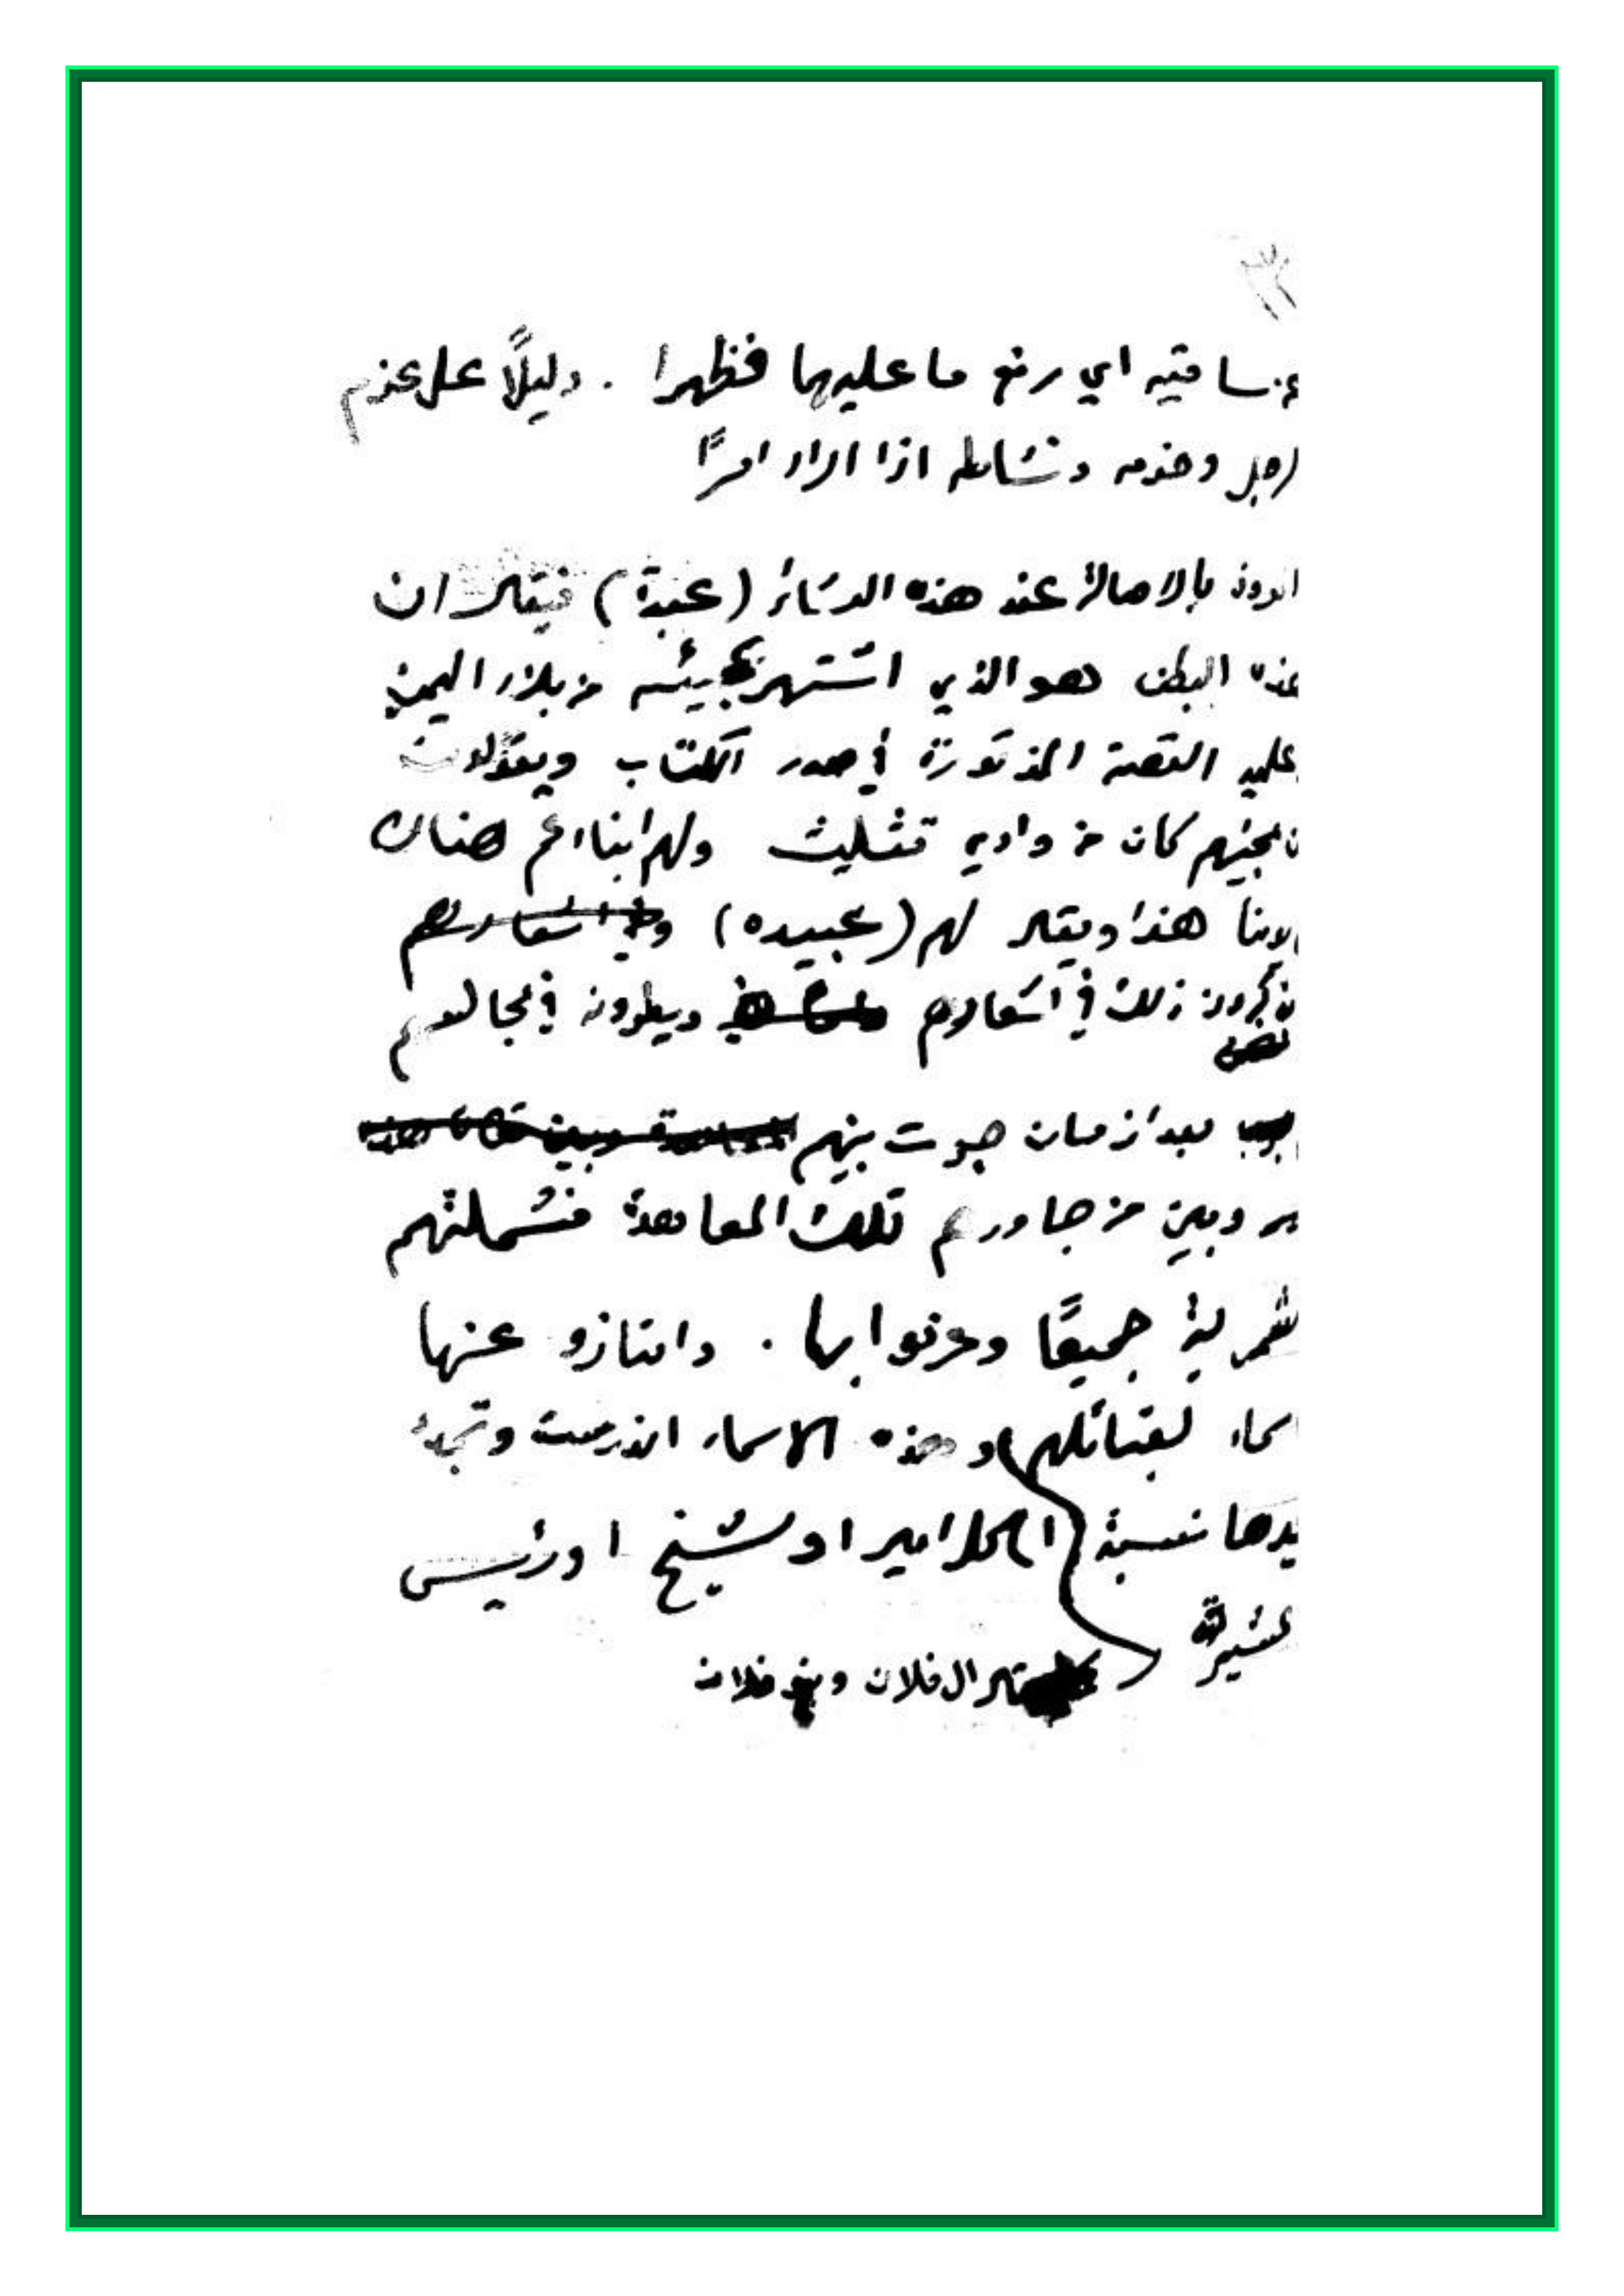 عن ساقيه اي رفع ما عليهما فظهرا . دليلاً على عزم
الرجل وحزمه ونشاطه اذا اراد امرًا
بالاصالة عند هذه العشائر (عبدة) فيقال ان
هذه البطن هو الذي اشتهر بمجيئه من بلاد اليمن
عليه القصة المذكورة في صدر الكتاب ويقولون
كان من وادي تثليث ولهم ابناء عم هناك
هذا ويقال لهم (عبيده) وفي اشعارهم
يذكرون ذلك في اشعارهم ويطرون في مجالسهم
بعد ازمان جرت بينهم
وبين من جاورهم تلك المعاهدة فشملتهم
الشمرية جميعًا وعرفوا بها . وامتازو عنها
اسماء لقبائلهم وهذه الاسماء اندرست وتجدد
نسبة الى كل امير او شيخ او رئيس
عشيرة
ال فلان وبني فلان